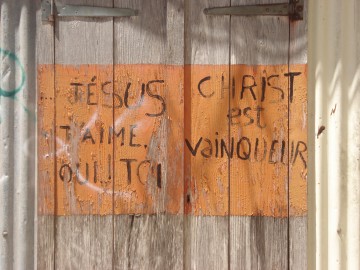 JÉSUS
T'AIME.
OUI! TOI
CHRIST
est
VaiNQUEUR